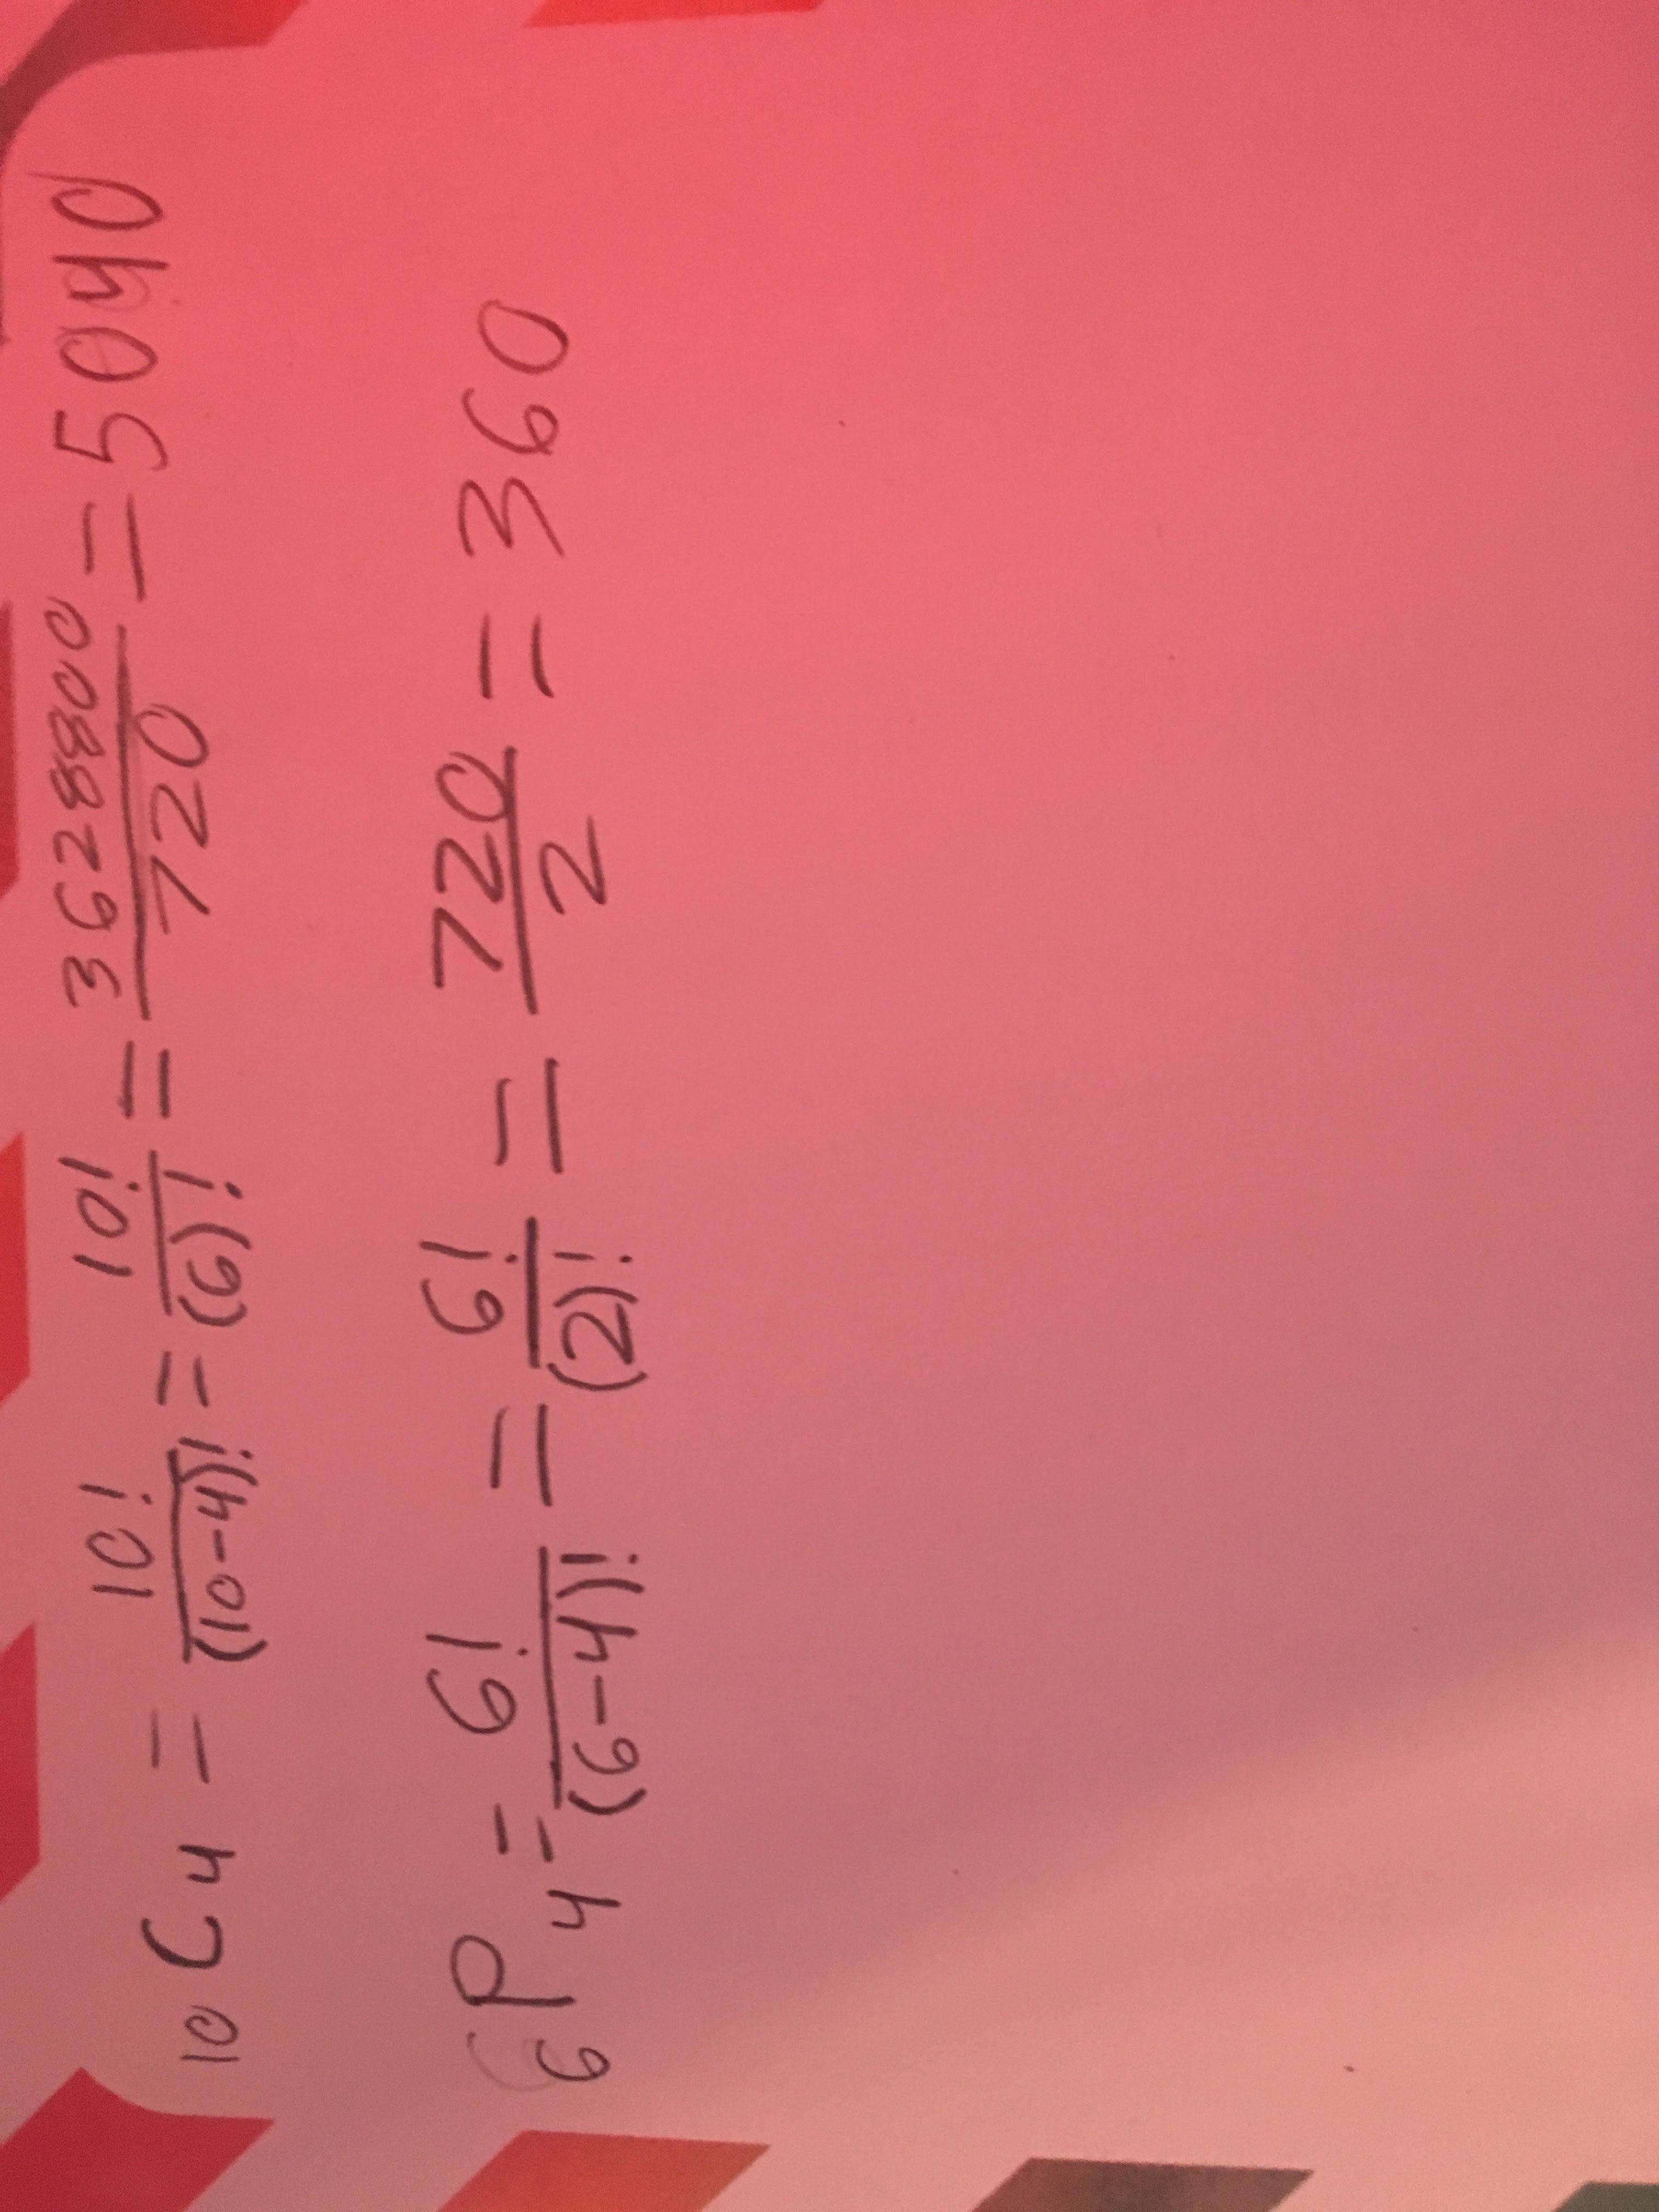 10C4 = 10!/(10-4)! = 10!/(6)! = 3628800/720 = 5040
6P4 = 6!/(6-4)! = 6!/(2)! = 720/2 = 360